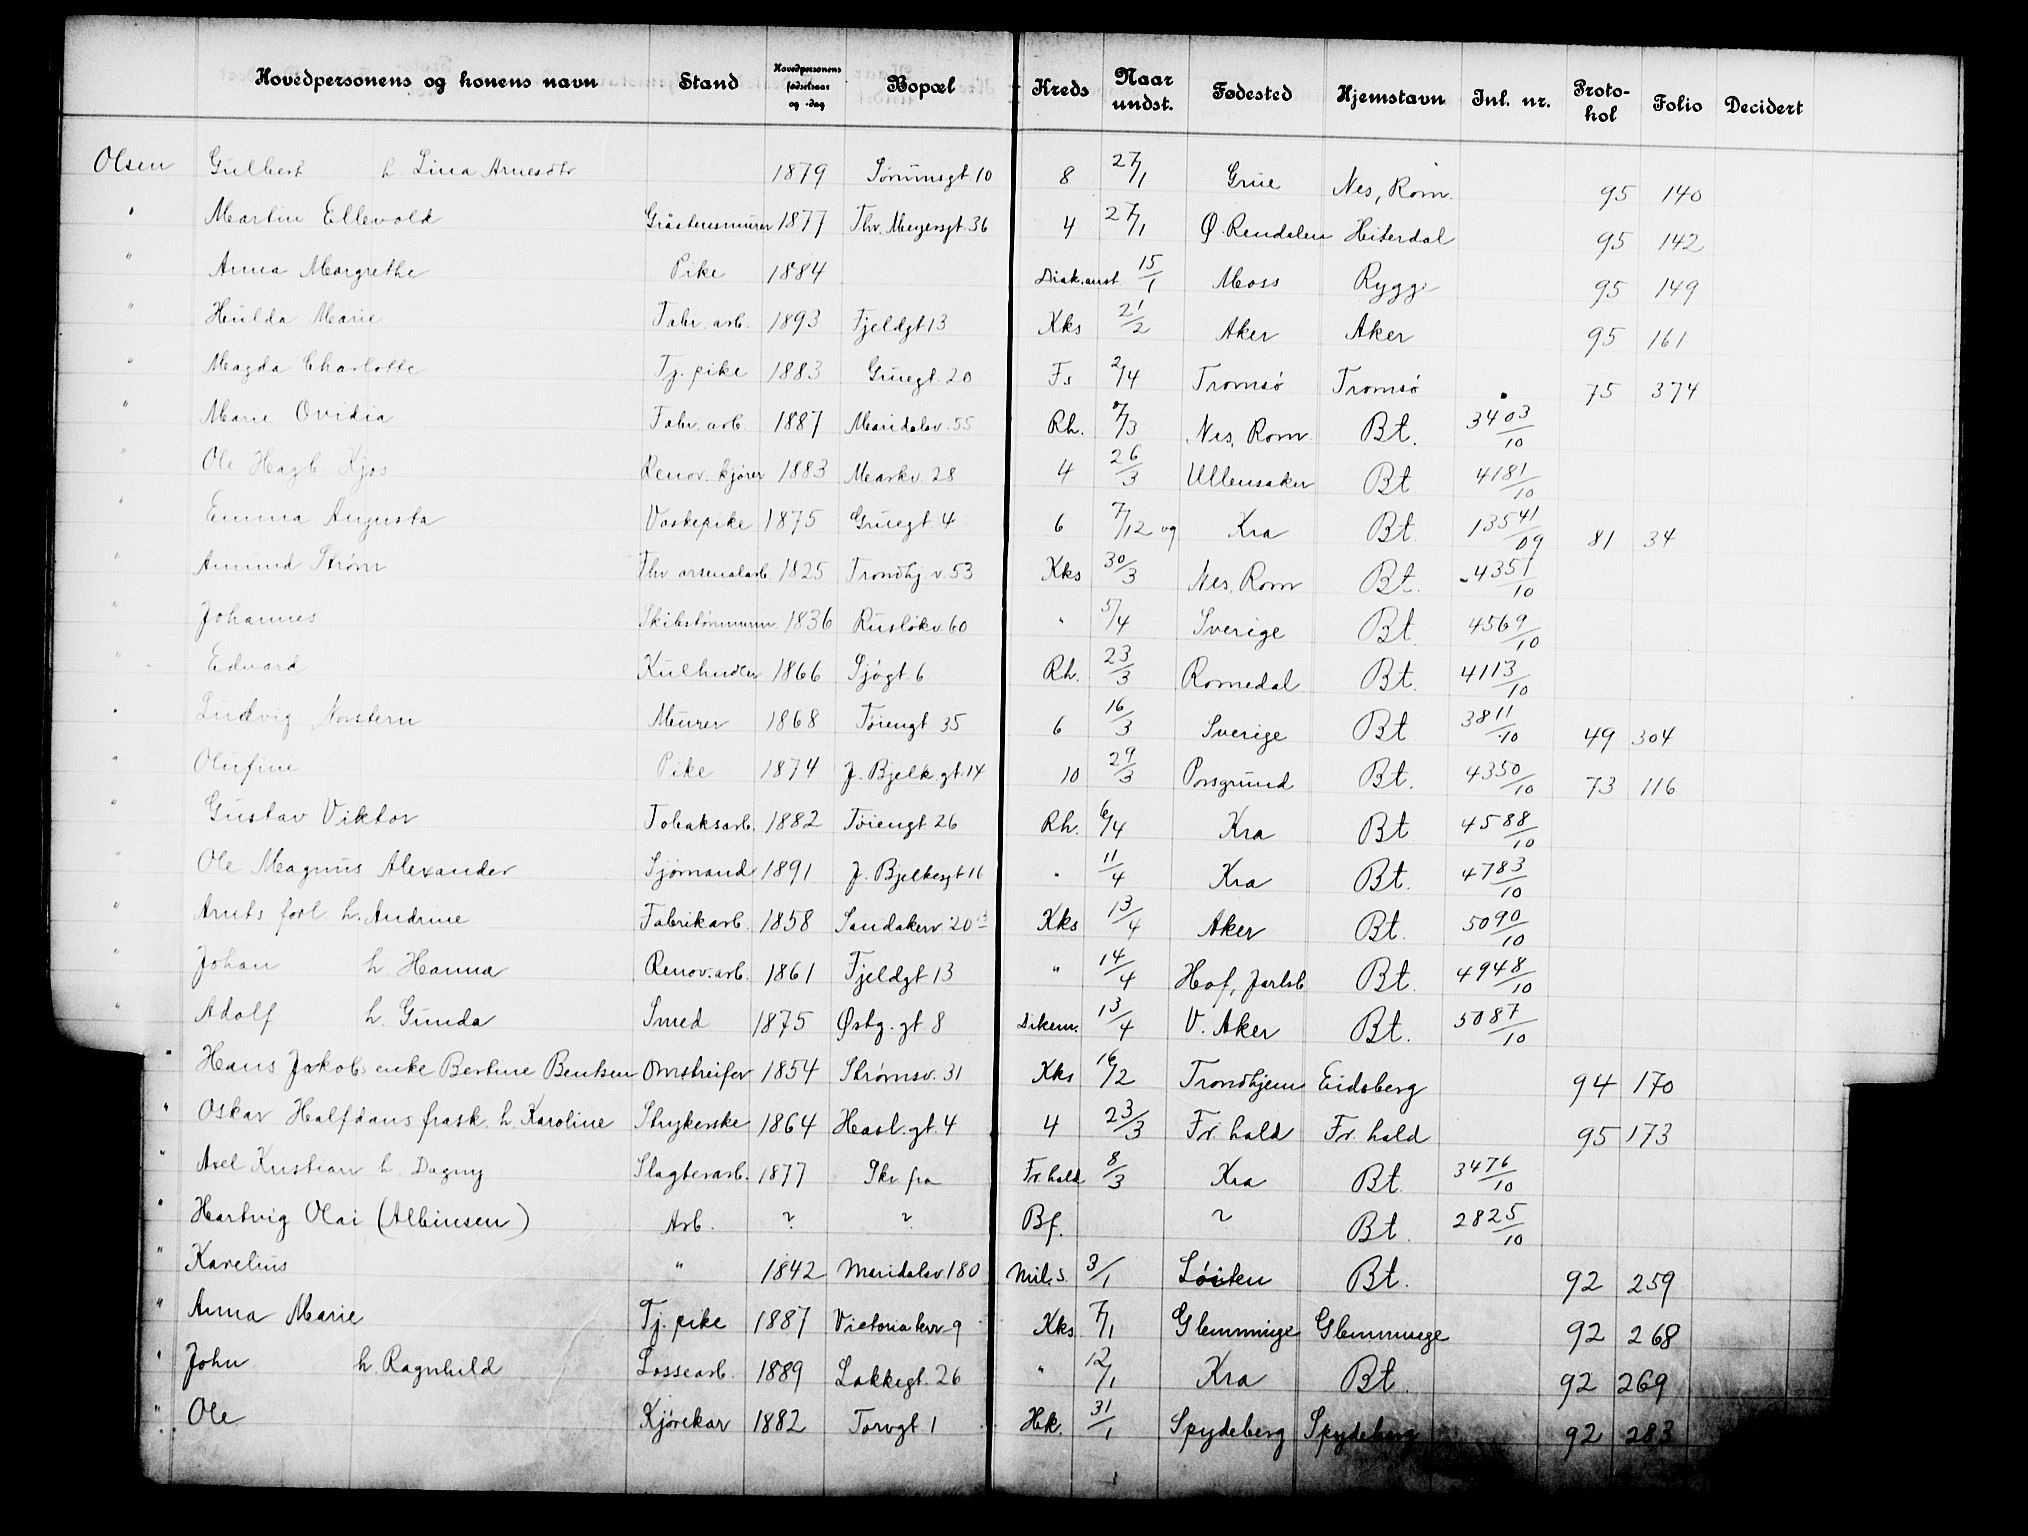 Hovedpersonens og konens navn Stand Hovedpersonens fødselsaar og -dag Bopæl Kreds Naar undst. Fødested Hjemstavn Inl. nr. Proto-kol Folio Decidert
Olsen Gulbert h Lina Arnesdtr 1879 Sørumsgt. 10 8 27/1 Grue Nes, Rom. 95 140
" Martin Ellevold Gråstensmurer 1877 Thv. Meyersgt. 36 4 27/1 Ø. Rendalen Hiterdal 95 142
" Anna Margrethe Pike 1884 Diak. anst. 15/1 Moss Rygge 95 149
" Hulda Marie Fabr. arb. 1893 Fjeldgt 13 Kks 21/2 Aker Aker 95 161
" Magda Charlotte Tj. pike 1883 Gruegt. 20 Fs 2/4 Tromsø Tromsø 75 374
" Marie Ovidia Fabr. arb. 1887 Maridalsv. 55 Rh. 7/3 Nes, Rom Bt. 3403/10
" Ole Hagb. Kjos Renov. kjører 1883 Markv. 28 4 26/3 Ullensaker Bt. 4181/10
" Emma Augusta Vaskepike 1875 Gruegt. 4 6 7/12 09 Kra Bt. 13541/09 81 34
" Amund Strøm Fhv arsenalarb. 1825 Trondhj. v. 53 Kks 30/3 Nes, Rom Bt. 4351/10
" Johannes Skibstømmerm. 1836 Rusløkv. 60 " 5/4 Sverige Bt. 4569/10
" Edvard Kulhndler 1866 Sjøgt. 6 Rh. 23/3 Romedal Bt. 4113/10
" Ludvig Norstern Murer 1868 Tøiengt 35 6 16/3 Sverige Bt 3811/10 49 304
" Olufine Pike 1874 J. Bjelk. gt. 14 10 29/3 Porsgrund Bt. 4350/10 73 116
" Gustav Viktor Tobaksarb. 1882 Tøiengt 26 Rh. 6/4 Kra Bt 4588/10
" Ole Magnus Alexander Sjømand 1891 J. Bjelkesgt 16 " 11/4 Kra Bt. 4783/10
" Arnts forl. h. Andrine Fabrikarb. 1858 Sandakerv. 20 Kks 13/4 Aker Bt. 5090/10
" Johan h. Hanna Renov. arb. 1861 Fjeldgt 13 " 14/4 Hof, Jarlsb Bt. 4948/10
" Adolf h. Gunda Smed 1875 Østg. gt. 8 Dikem. 13/4 V. Aker Bt. 5087/10
" Hans Jakobs enke Bertine Bentsen Omstreifer 1854 Strømsv. 31 Kks 16/2 Trondhjem Eidsberg 94 170
" Oskar Halfdans frask. h. Karoline Strykerske 1864 Hasl. gt. 4 4 23/3 Fr. hald Fr. hald 95 173
" Axel Kristian h. Dagny Slagterarb. 1877 Skr fra Fr. hald 8/3 Kra Bt. 3476/10
" Hartvig Olai (Albinsen) Arb. ? ? Bf. ? Bt. 2825/10
" Karelius " 1842 Maridalsv 180 Mil. s. 3/1 Løiten Bt. 92 259
" Anna Marie Tj. pike 1887 Victoria terr 9 Kks 7/1 Glemminge Glemminge 92 268
" John h. Ragnhild Lossearb. 1889 Lakkegt. 26 " 12/1 Kra Bt. 92 269
" Ole Kjørekar 1882 Torvgt 1 Hk. 31/1 Spydeberg Spydeberg 92 283